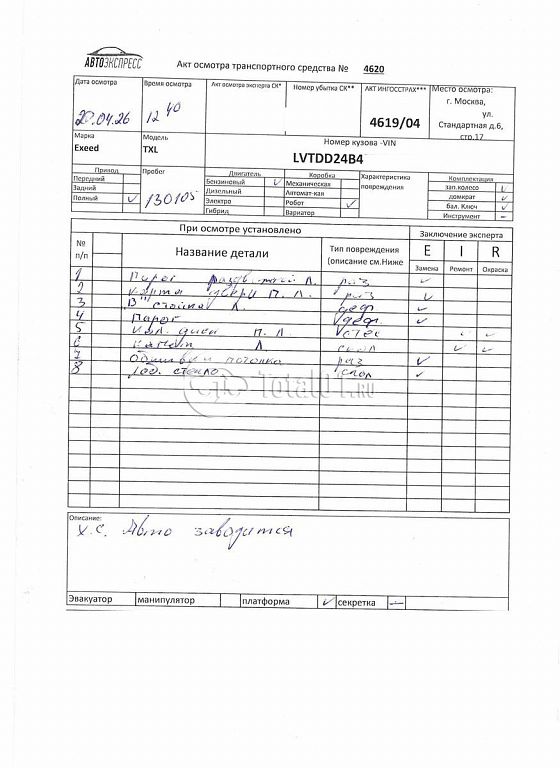 АВТОЭКСПРЕСС
Акт осмотра транспортного средства № 4620
Дата осмотра
20.04.26
Время осмотра
12 40
Акт осмотра эксперта СК*
Номер убытка СК**
АКТ ИНГОССТРАХ***
4619/04
Место осмотра:
г. Москва,
ул.
Стандартная д.6,
стр.17
Марка
Exeed
Модель
TXL
Номер кузова -VIN
LVTDD24B4
Привод
Передний
Задний
Полный ✓
Пробег
130105
Двигатель
Бензиновый ✓
Дизельный
Электро
Гибрид
Коробка
Механическая
Автомат-кая
Робот ✓
Вариатор
Характеристика
повреждения
Комплектация
зап.колесо ✓
домкрат ✓
бал. Ключ ✓
Инструмент –
При осмотре установлено
Заключение эксперта
№
п/п
Название детали
Тип повреждения
(описание см.Ниже
E I R
Замена Ремонт Окраска
1 Л. раз ✓
2 карта двери П. Л. раз ✓
3 В" стойка Л. деф ✓
4 Порог деф ✓
5 П. Л. ✓ ✓
6 Капот Л ✓ ✓
7 Обшивка потолка раз ✓
8 Лоб. стекло скол ✓
Total01.ru
Описание:
х.с. Авто заводится
Эвакуатор манипулятор платформа ✓ секретка –